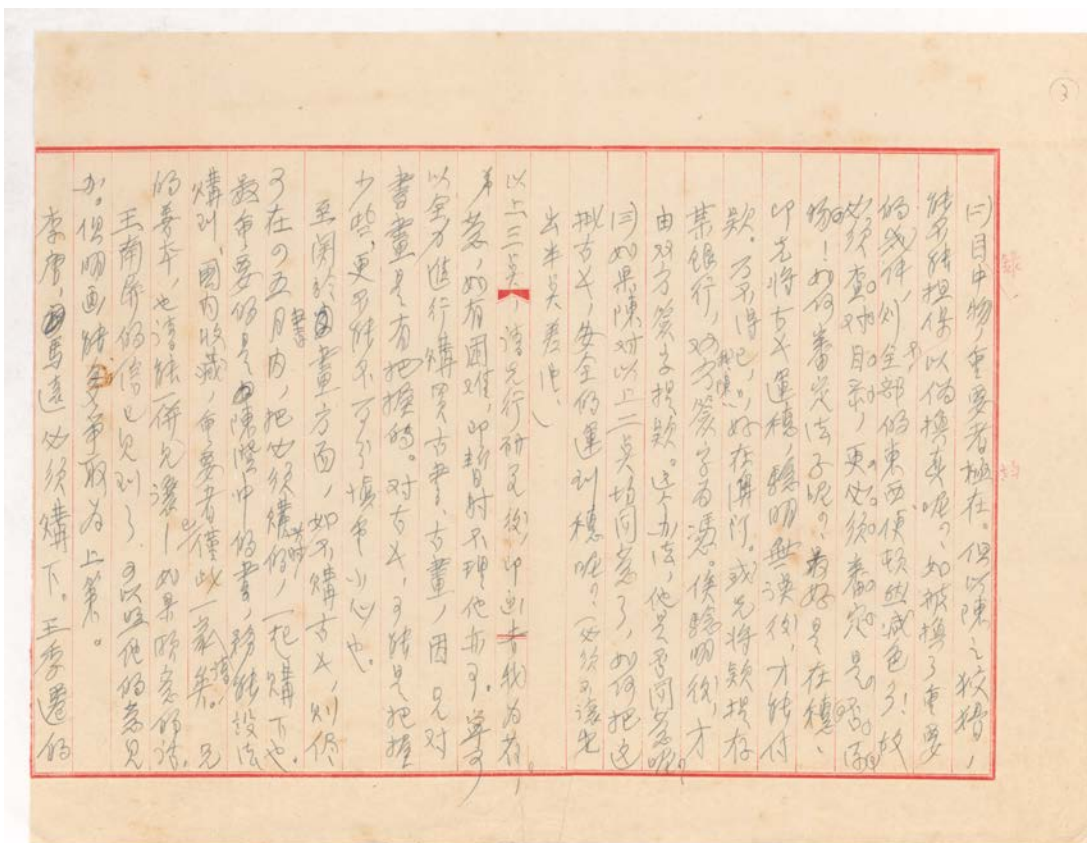 (二)目中物,重要者極在。但以陳之狡猾,
能不能担保以偽換真呢?、如被換了重要
的幾件,則全部的東西便頓然減色了!故
必須查对目录,更必须審定是否原
物!如何審定法子呢?最好是在穗、
即先將古弋運穗,驗明無误後,才能付
款。万不得已,好在澳门。或先将款提存
某銀行,双方簽字為憑。俟驗明後,才
由双方簽字提款。这个办法,他是否同意呢?
(三)如果陳对以上二点均同意了,如何把这
批古弋,安全的運到穗呢?、必须不讓出
出半点差池。
以上三点,請先行研究後,即函告我為荷,
弟意,如有困难,即暫时不理他亦可。寧可
以全力進行購買古書、古畫,因兄对
書畫是有把握的。对古弋,可能是把握
少些,更不能不万分慎重小心也。
至関於書畫方面,如不購古弋,則侭
可在四五月内,把必须購的,一起購下也。
最重要的是陳澄中的書,務能設法
購到,國内收藏,重要者僅此一家矣。兄
的善本,也請能一併見讓—如果願意的話。
王南屏的信已见到了,可以照他的意見
办。但明画能多争取為上策。
李唐,馬遠必须購下。王季遷的
②